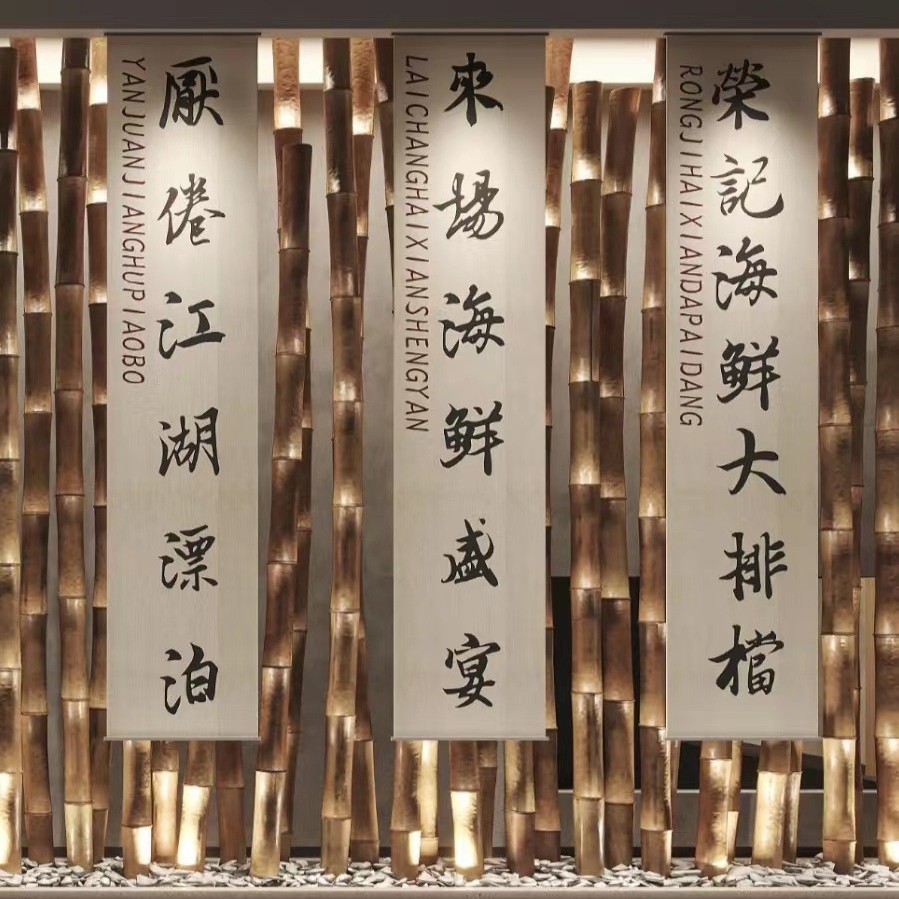 厭倦江湖漂泊
YANJUANJIANGHUPIAOBO
來場海鮮盛宴
LAICHANGHAIXIANSHENGYAN
榮記海鮮大排檔
RONGJIHAIXIANDAPAIDANG